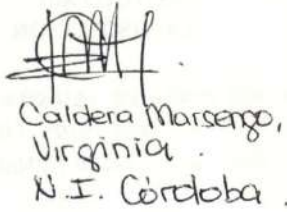 Caldera Marsengo,
Virginia.
N.I. Córdoba.